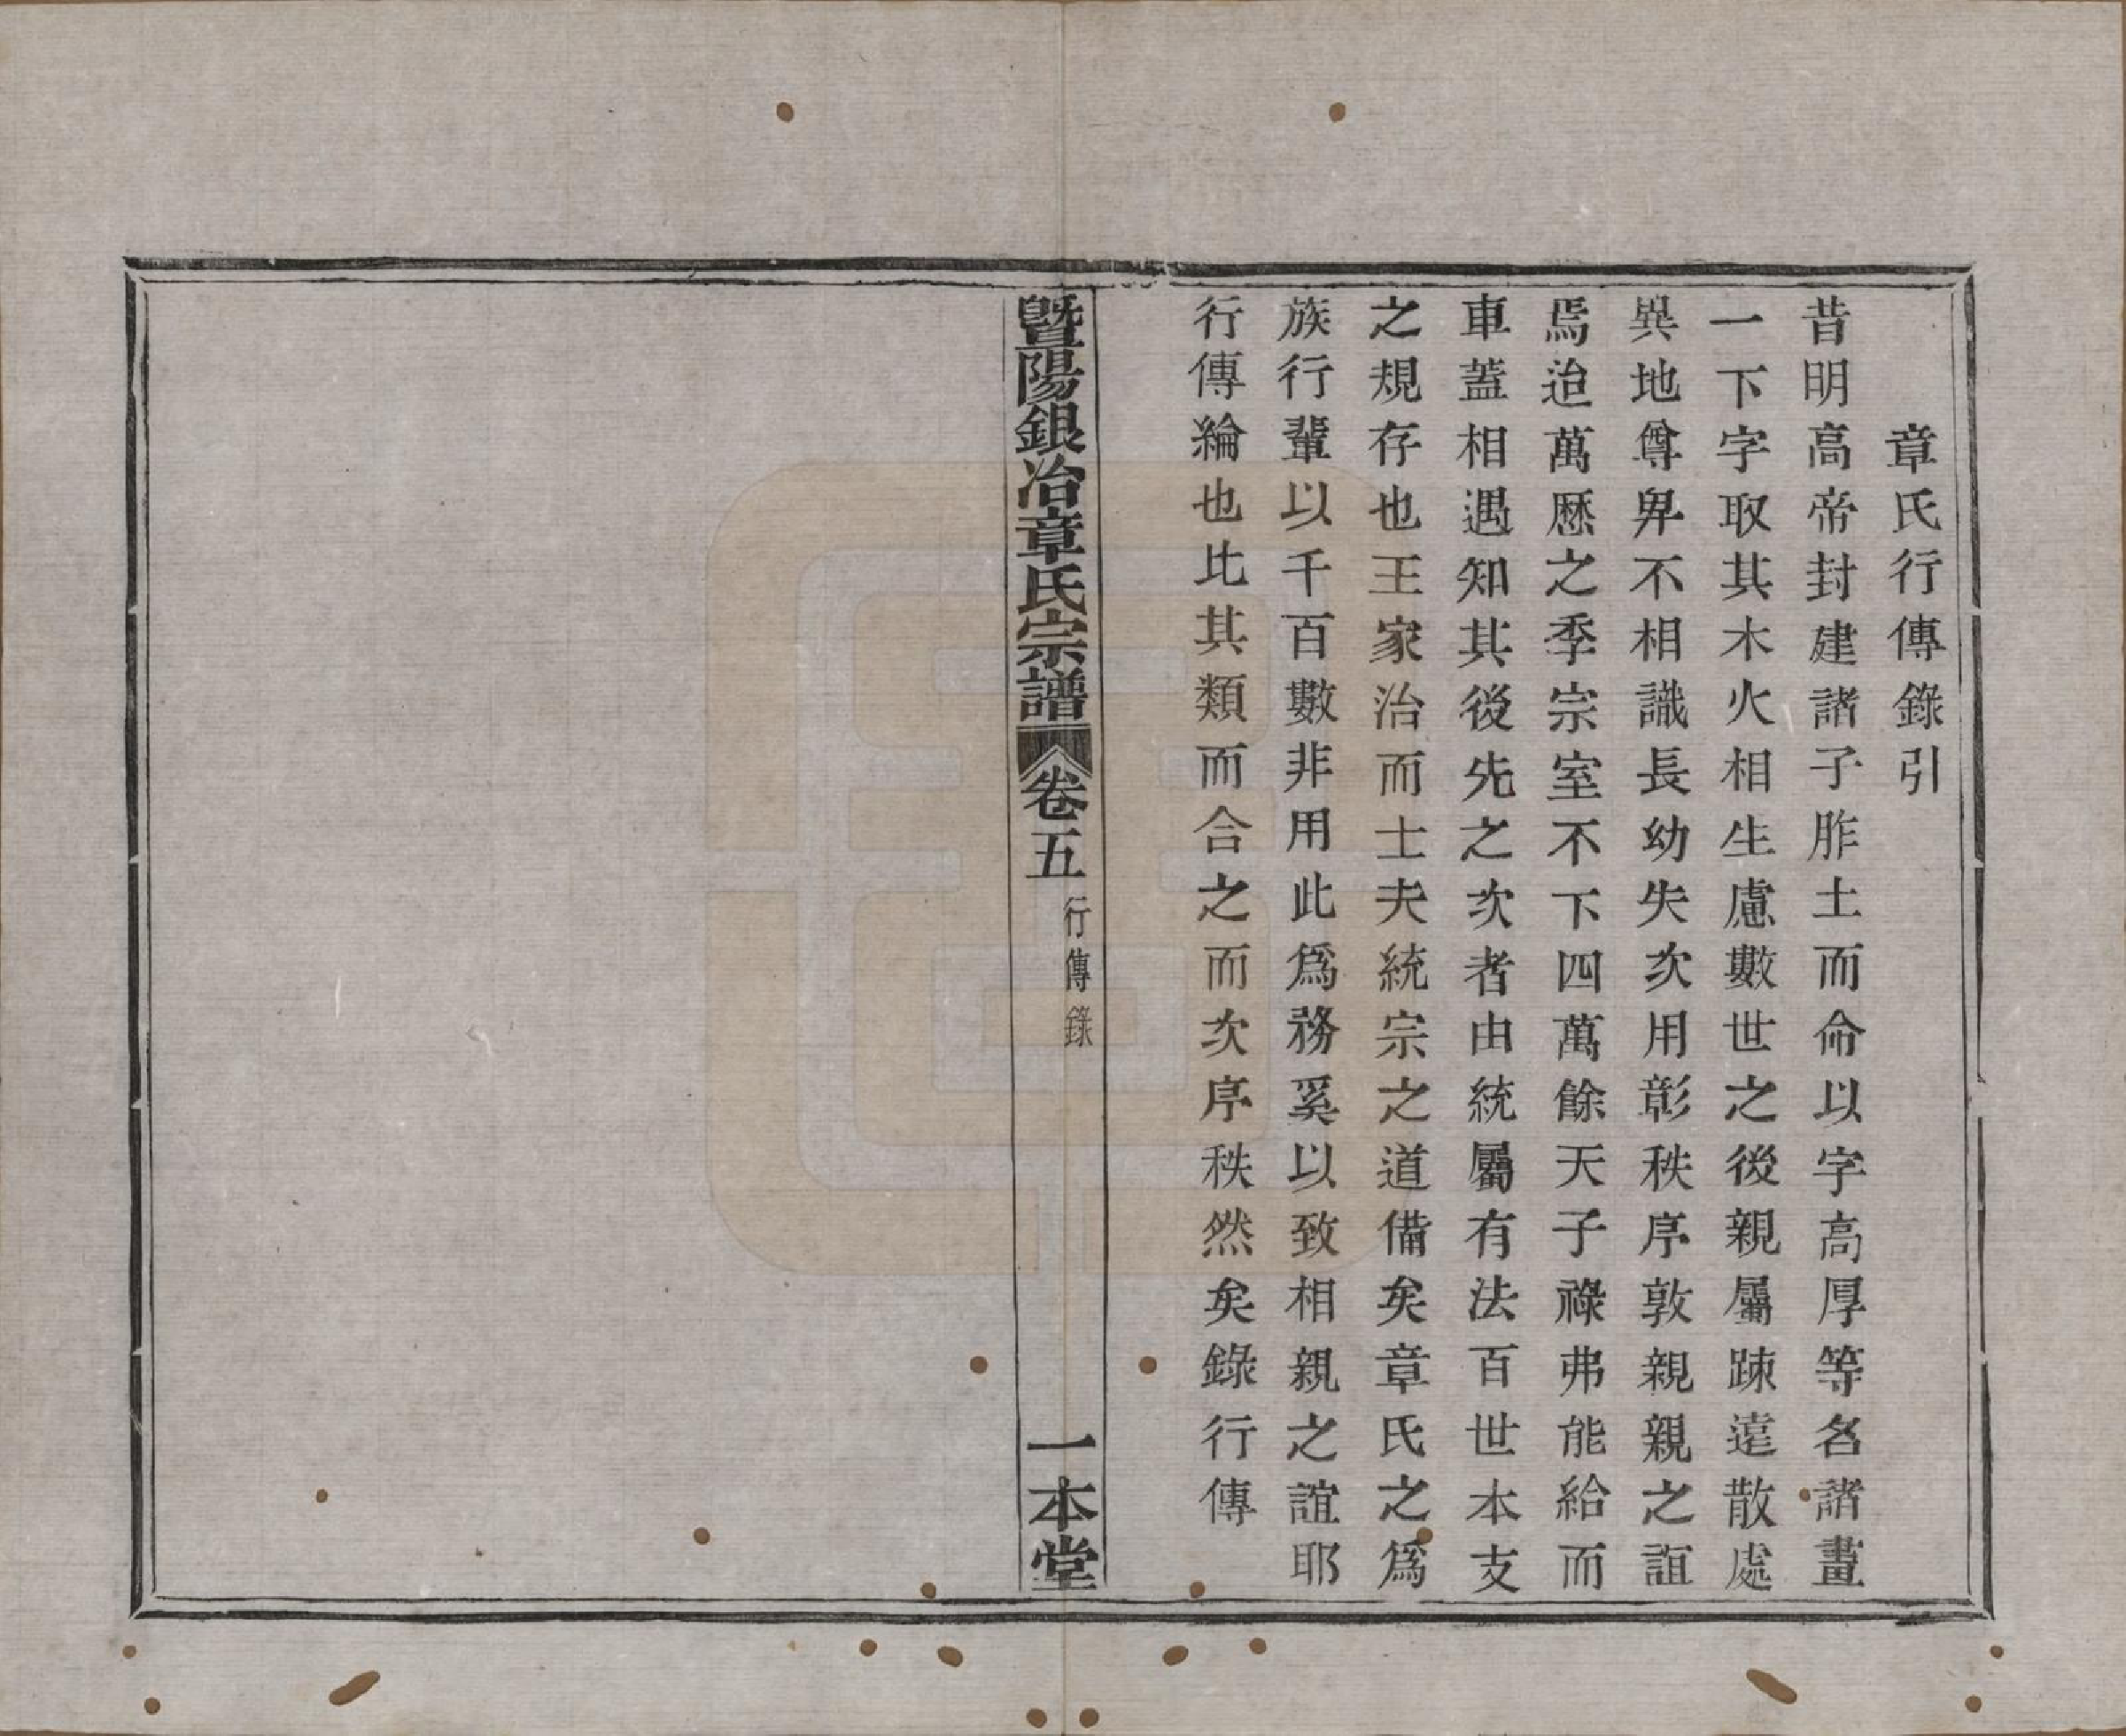 章氏行傳錄引
昔明高帝封建諸子胙土而命以字高厚等名諸畫
一下字取其木火相生慮數世之後親屬踈遠散處
異地尊卑不相識長幼失次用彰秩序敦親親之誼
焉迨萬曆之季宗室不下四萬餘天子祿弗能給而
車蓋相遇知其後先之次者由統屬有法百世本支
之規存也王家治而士夫統宗之道備矣章氏之爲
族行輩以千百數非用此爲務奚以致相親之誼耶
行傳綸也比其類而合之而次序秩然矣錄行傳
暨陽銀冶章氏宗譜
卷五
行傳錄
一本堂